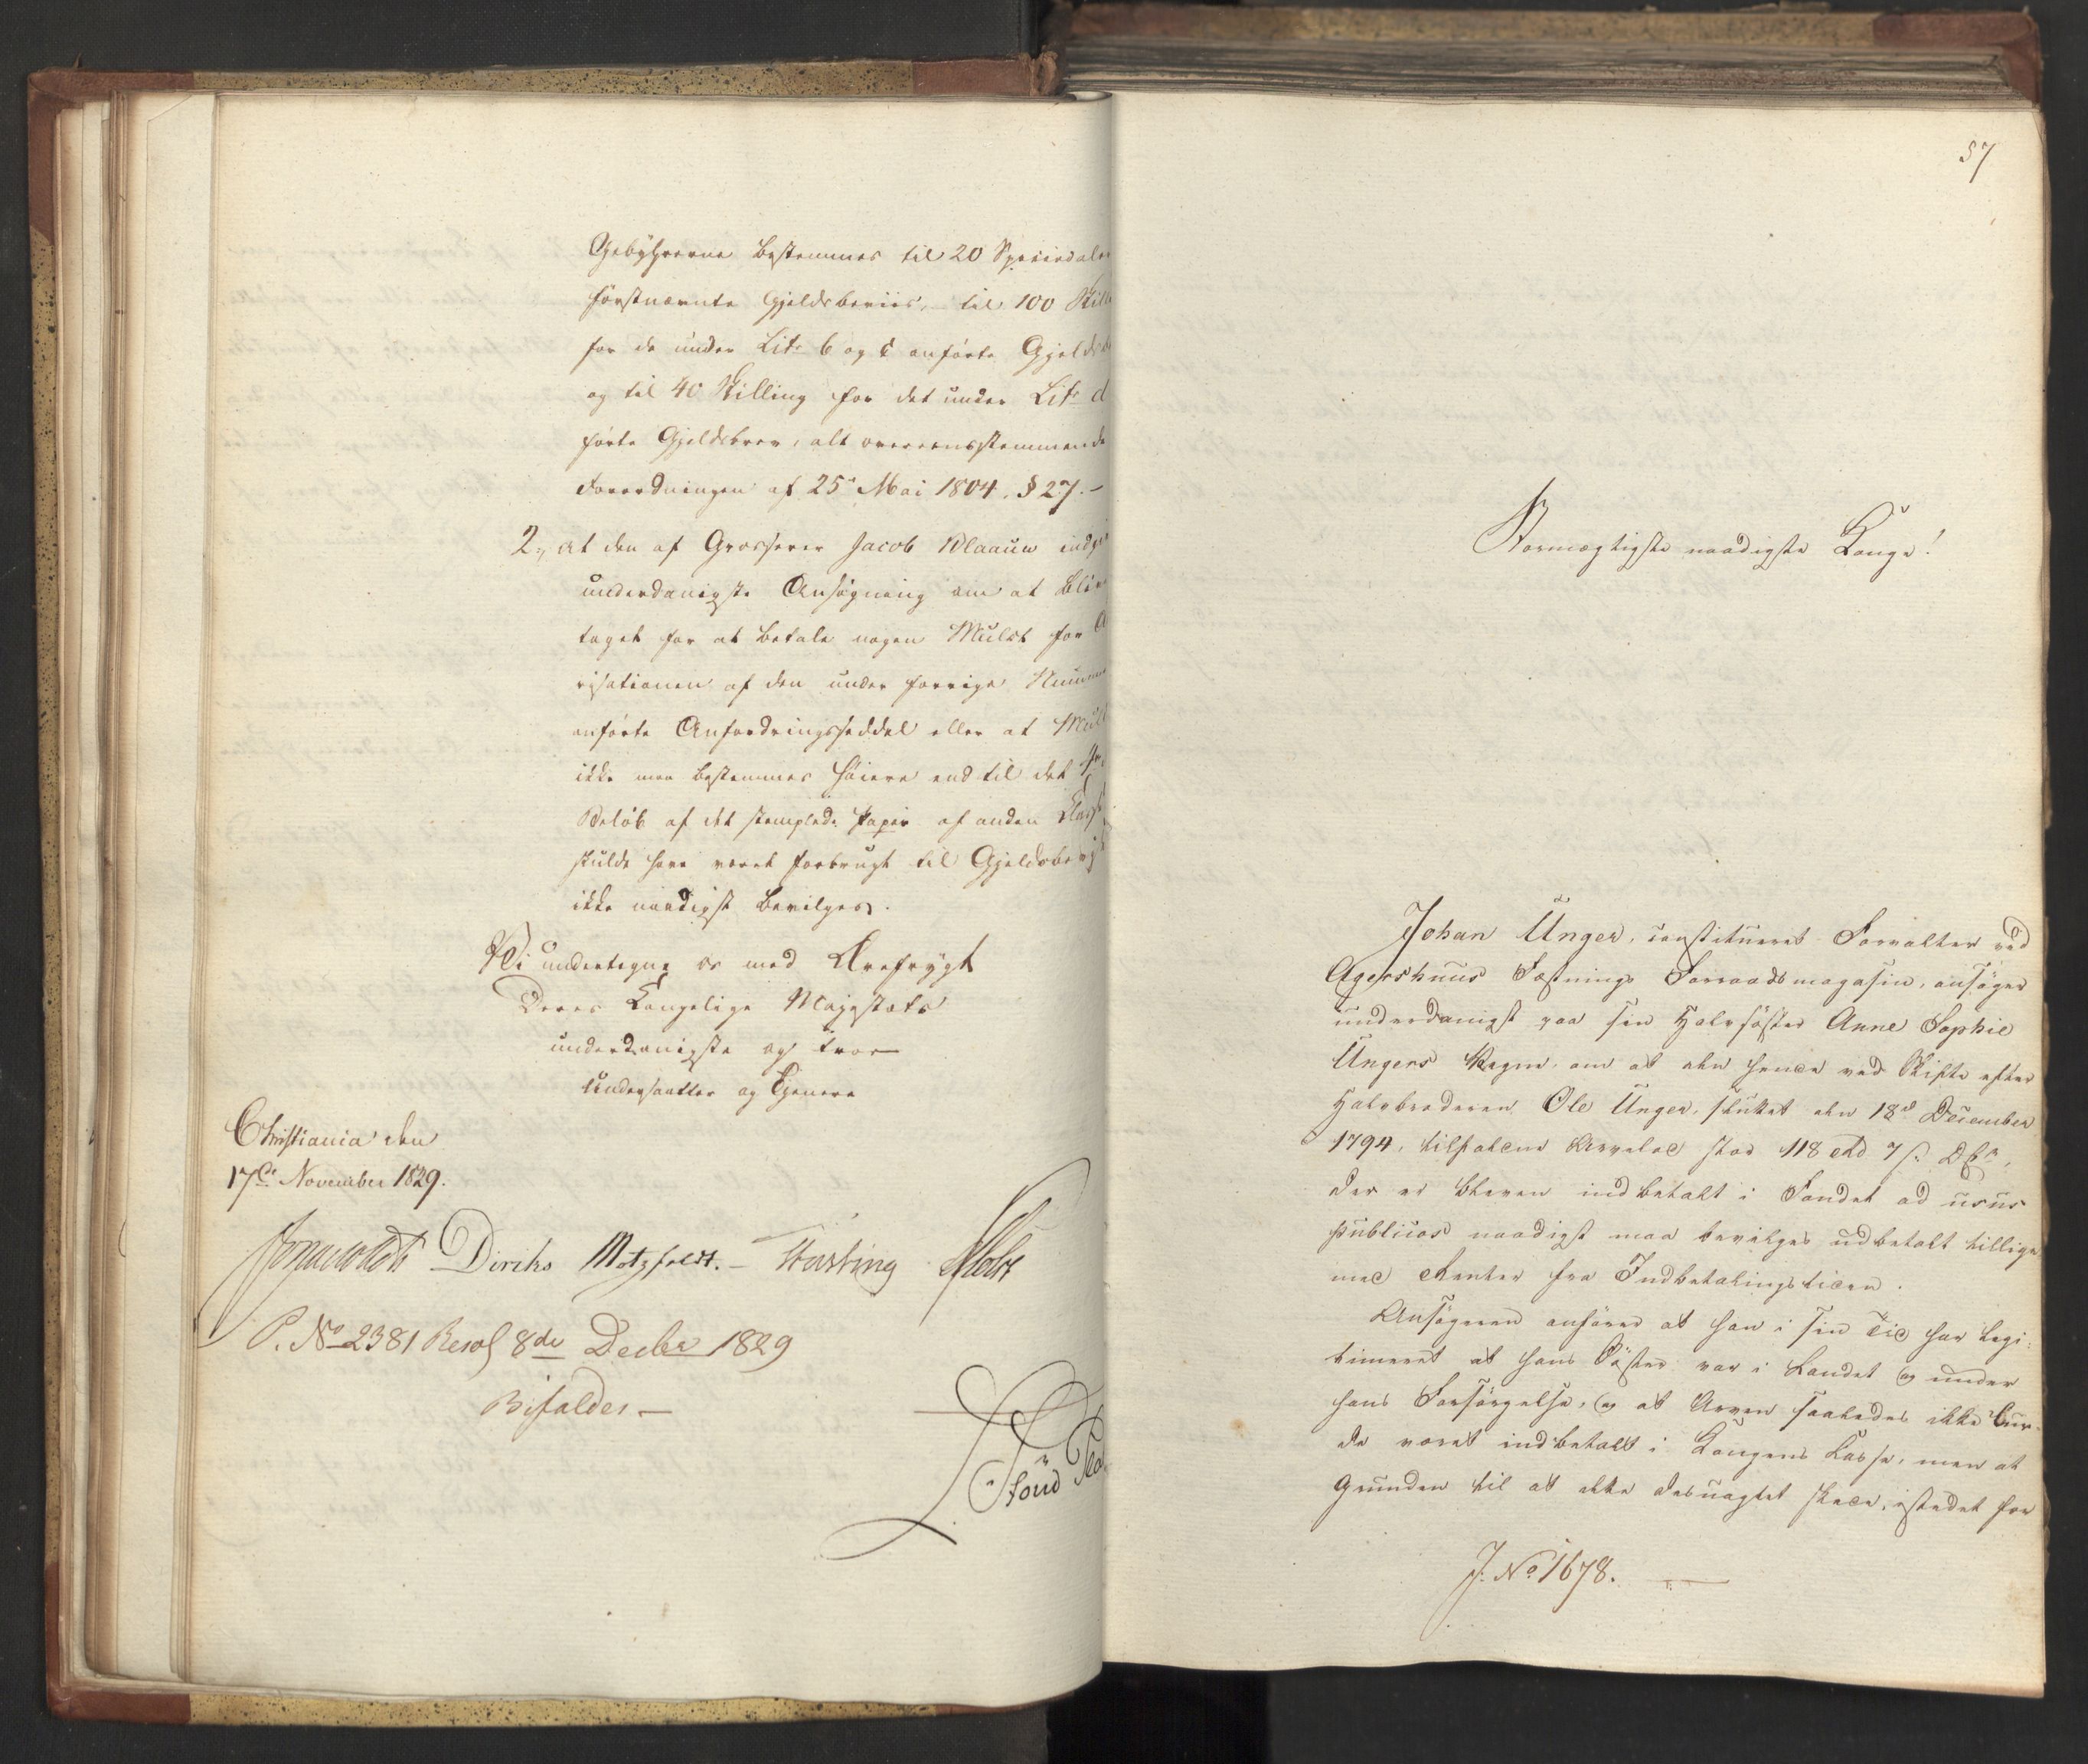 Gebyhrerne bestemmes til 20 Speciedaler
förstnævnte Gjeldsbeviis, til 100 Skill
for de under Litr b og c anförte Gjelds
og til 40 Skilling for det under Litr d
förte Gjeldsbrev, alt overeensstemmende
Forordningen af 25 Mai 1804. § 27.-
2., at den af Grosserer Jacob Blaauw indgi
underdanigste Ansögning om at bliv
taget for at betale nogen Mulct for
risationen af den under forrige Numme
anförte Anfordringsseddel eller at Mul
ikke maa bestemmes höiere end til det
Belöb af det stemplede Papir af anden Class
skulde have været forbrugt til Gjeldsbe
ikke naadigst bevilges.
Vi undertegne os med Ærefrygt
Deres Kongelige Majestæts
underdanigste og troe
Undersaatter og Tjenere
Christiania den
17de November 1829.
Diriks Motzfeldt. - Hasting Holst
P. No 2381 Resol 8de Decbr 1829
Bifaldes -
57
Stormægtigste naadigste Konge!
Johan Unger, constitueret Forvalter ved
Agershuus Fæstnings Forraadsmagasin, ansöger
underdanigst paa sin Halvsöster Anne Sophie
Ungers Vegne, om at den hende ved Skifte efter
Halvbroderen Ole Unger, sluttet den 18d December
1794, tilfaldne Arvelod stor 118 Rd 7 s. D. C.,
der er bleven indbetalt i Fondet ad usus
publicos naadigst maa bevilges udbetalt tillige
med Renter fra Indbetalingstiden.
Ansögeren anförer at han i sin Tid har legi-
timeret at hans Söster var i Landet og under
hans Forsörgelse, og at Arven saaledes ikke bur-
de været indbetalt i Kongens Kasse, men at
Grunden til at dette desuagtet skede, istedet for
J: No 1678.